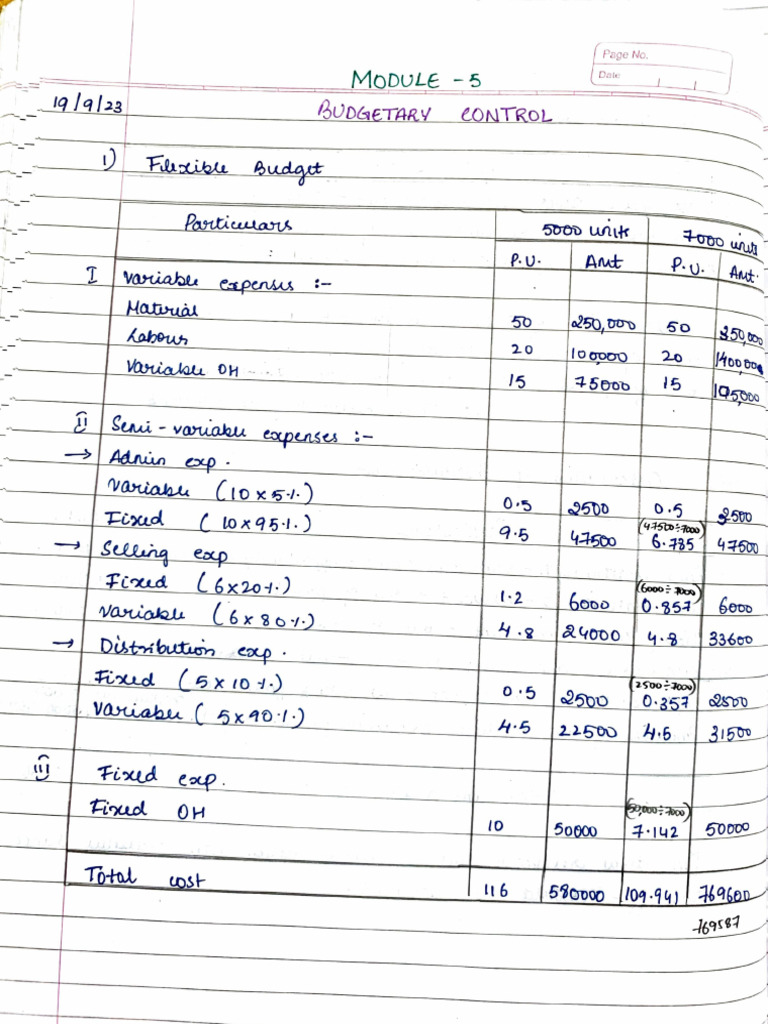 Page No.
Date
MODULE - 5
19/9/23
BUDGETARY CONTROL
1) Flexible Budget
Particulars 5000 units 7000 units
P.U. Amt P.U. Amt.
I Variable expenses :-
Material 50 250,000 50 350,000
Labour 20 100000 20 1400,000
Variable OH 15 75000 15 105,000
II Semi-variable expenses :-
→ Admin exp.
Variable (10 x 5%) 0.5 2500 0.5 3500
Fixed (10 x 95%) 9.5 47500 (47500÷7000) 6.785 47500
→ Selling exp
Fixed (6 x 20%) 1.2 6000 (6000÷7000) 0.857 6000
Variable (6 x 80%) 4.8 24000 4.8 33600
→ Distribution exp.
Fixed (5 x 10%) 0.5 2500 (2500÷7000) 0.357 2500
Variable (5 x 90%) 4.5 22500 4.5 31500
III Fixed exp.
Fixed OH 10 50000 (50,000÷7000) 7.142 50000
Total cost 116 580000 109.941 769600
769587